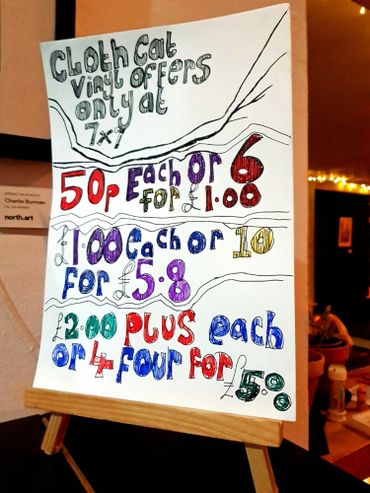 CLOTH Cat
Vinyl offers
only at
7x7
50p Each or 6
for £1.00
£1.00 each or 10
for £5.8
£2.00 PLUS each
or 4 Four for £5.00
Charlie Burman
north.art